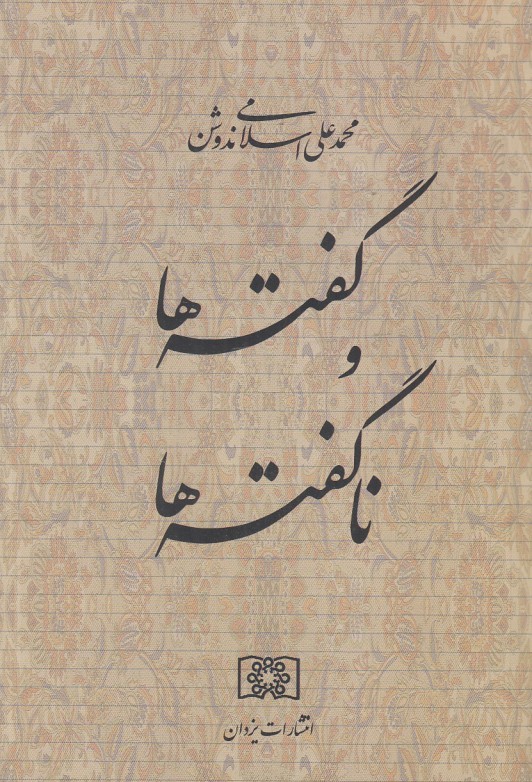 محمدعلی اسلامی ندوشن
گفته‌ها
و
ناگفته‌ها
انتشارات یزدان